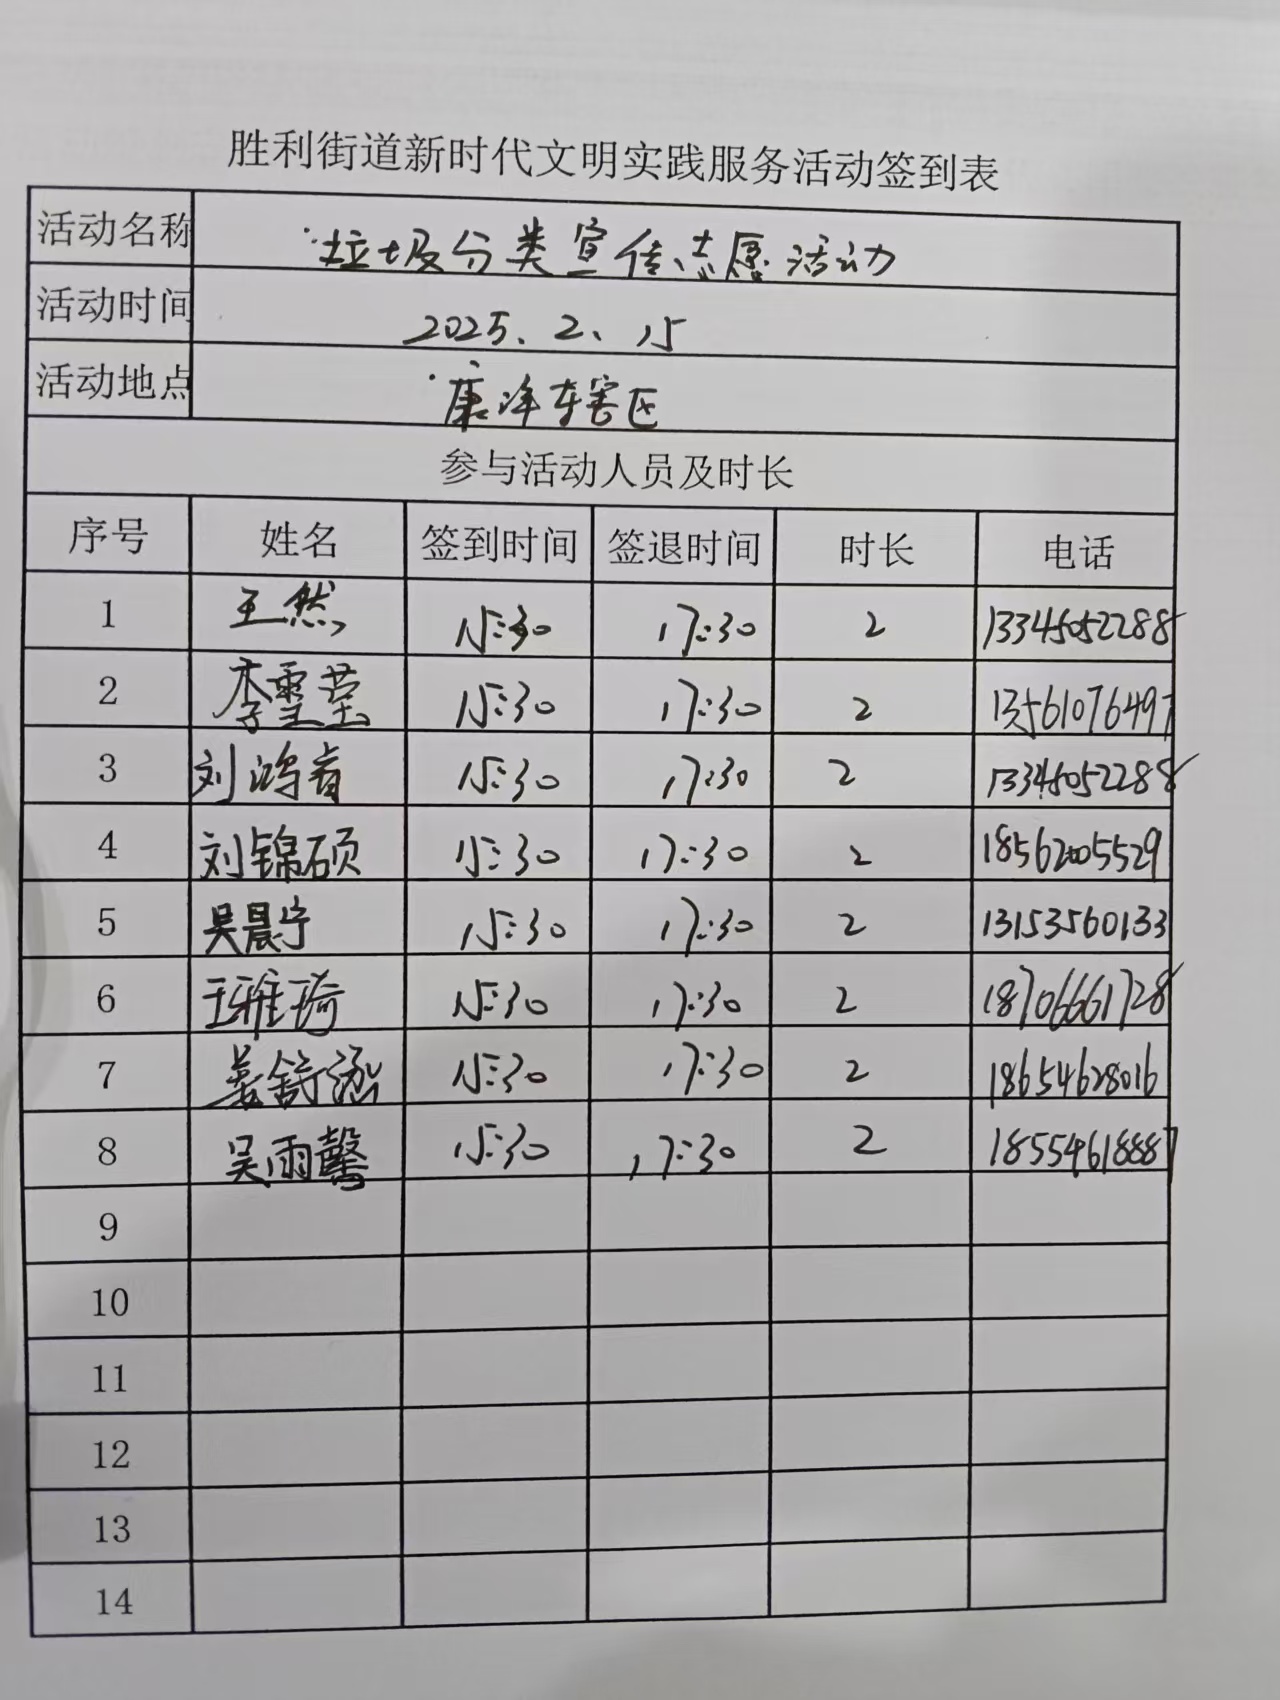 胜利街道新时代文明实践服务活动签到表
活动名称 垃圾分类宣传志愿活动
活动时间 2025.2.15
活动地点 康洋辖区
参与活动人员及时长
序号 姓名 签到时间 签退时间 时长 电话
1 王然 15:30 17:30 2 13345052288
2 李雪莹 15:30 17:30 2 13561076497
3 刘鸿睿 15:30 17:30 2 13345052288
4 刘锦硕 15:30 17:30 2 18562005529
5 吴晨宁 15:30 17:30 2 13153560133
6 王雅琦 15:30 17:30 2 18706661728
7 姜舒涵 15:30 17:30 2 18654628016
8 吴雨馨 15:30 17:30 2 18554618887
9
10
11
12
13
14